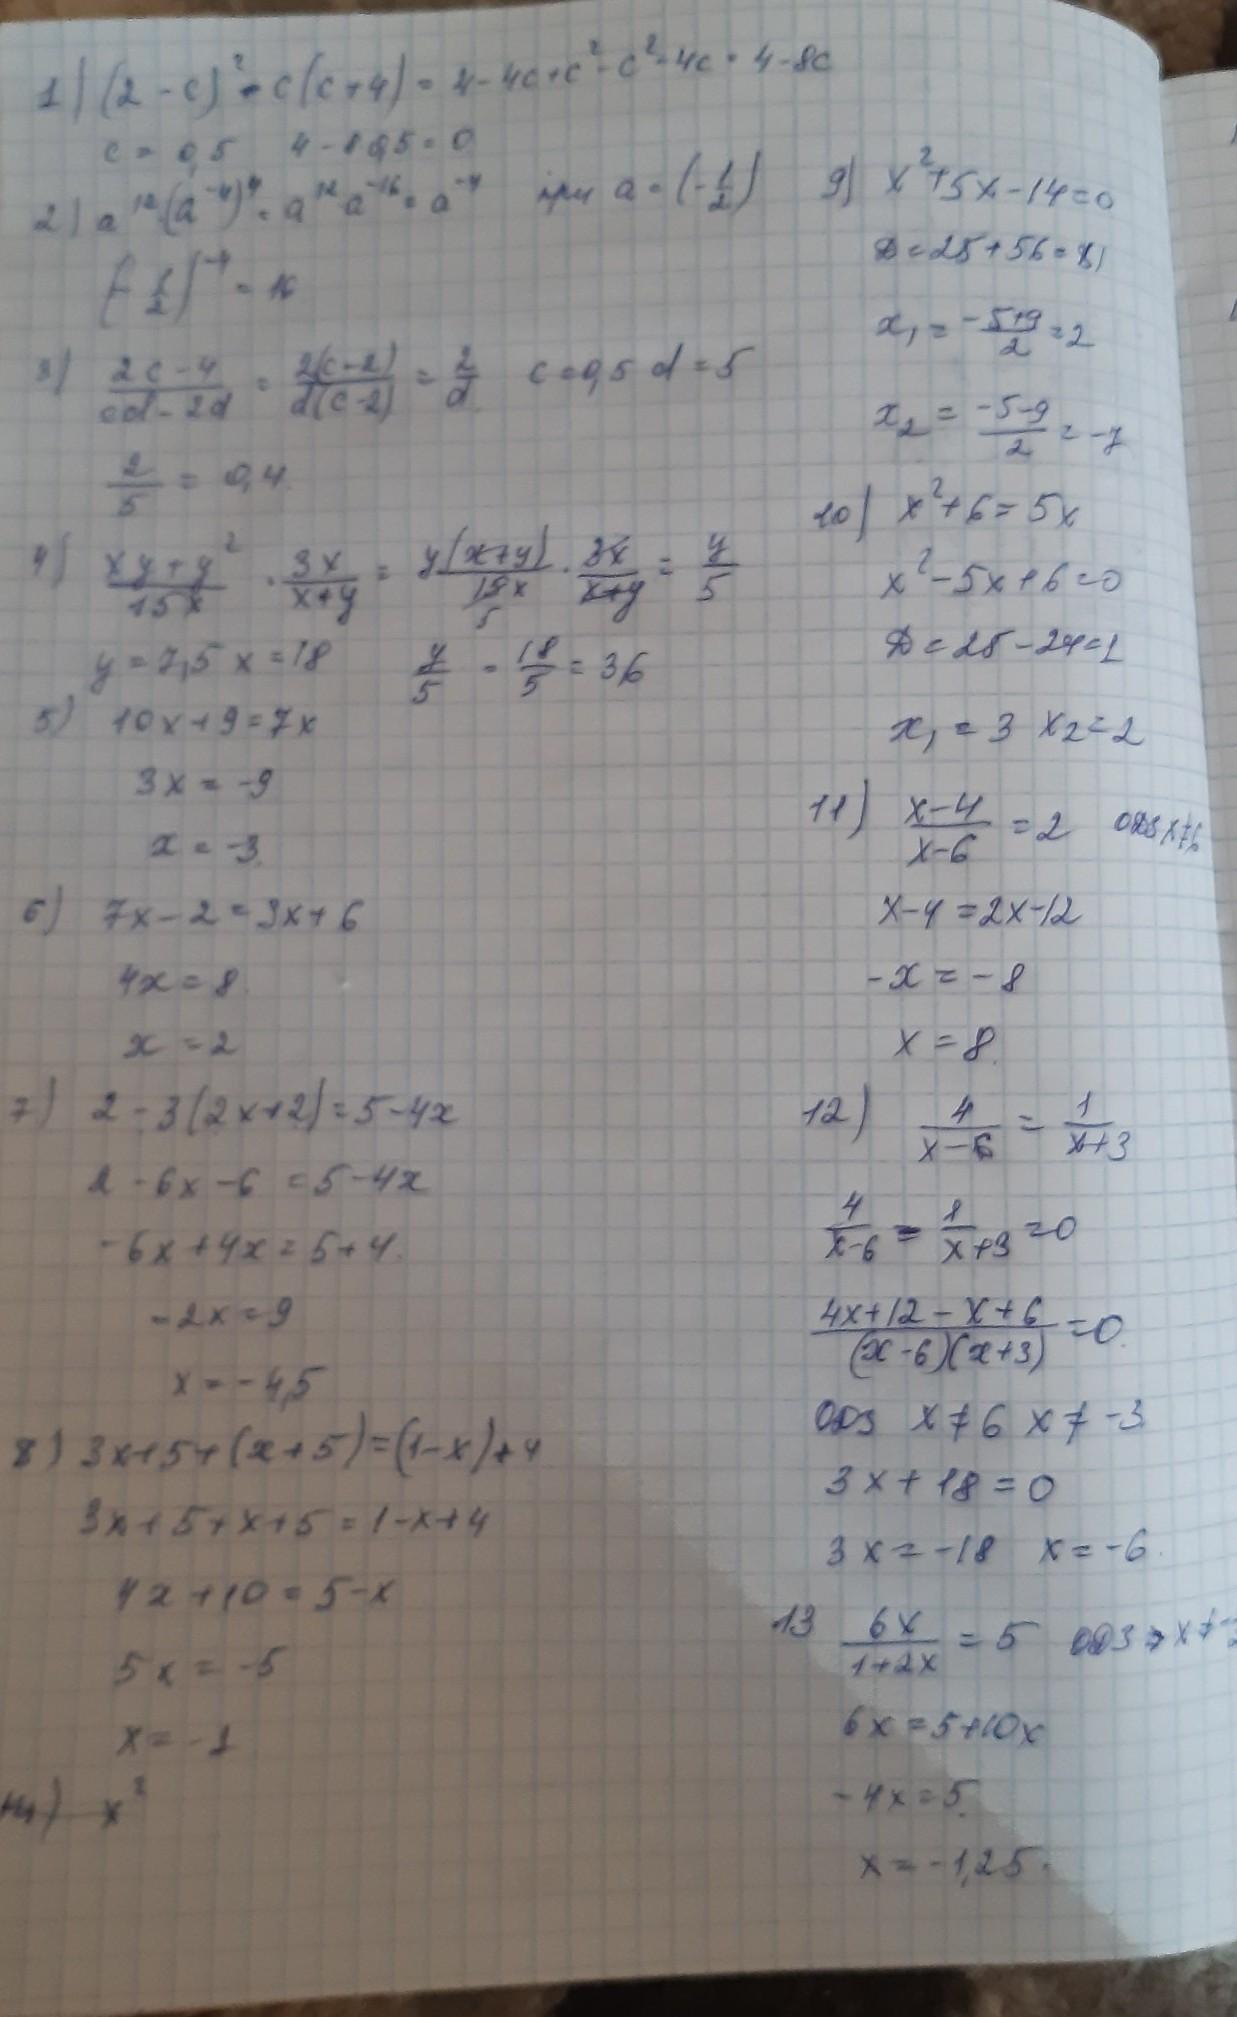 1) (2-c)² - c(c+4) = 4-4c+c²-c²-4c = 4-8c
c = 0,5 4-8·0,5=0
2) a¹²·(a⁻⁴)⁴ = a¹² a⁻¹⁶ = a⁻⁴ при a = (-1/2)
(-1/2)⁻⁴ = 16
3) (2c-4)/(cd-2d) = 2(c-2)/d(c-2) = 2/d c=0,5 d=5
2/5 = 0,4
4) (xy+y²)/15x · 3x/(x+y) = y(x+y)/15x · 3x/(x+y) = y/5
5
y=7,5 x=18 y/5 = 18/5 = 36
5) 10x+9=7x
3x = -9
x = -3
6) 7x-2=3x+6
4x=8
x=2
7) 2-3(2x+2)=5-4x
2-6x-6=5-4x
-6x+4x=5+4
-2x=9
x=-4,5
8) 3x+5+(x+5)=(1-x)+4
3x+5+x+5=1-x+4
4x+10=5-x
5x=-5
x=-1
14) x²
9) x²+5x-14=0
D=25+56=81
x₁ = (-5+9)/2 = 2
x₂ = (-5-9)/2 = -7
10) x²+6=5x
x²-5x+6=0
D=25-24=1
x₁=3 x₂=2
11) (x-4)/(x-6) = 2 ОДЗ x≠6
x-4=2x-12
-x=-8
x=8
12) 4/(x-6) = 1/(x+3)
4/(x-6) - 1/(x+3) = 0
(4x+12-x+6)/(x-6)(x+3) = 0
ОДЗ x≠6 x≠-3
3x+18=0
3x=-18 x=-6
13 6x/(1+2x) = 5 ОДЗ x≠-
6x=5+10x
-4x=5
x=-1,25